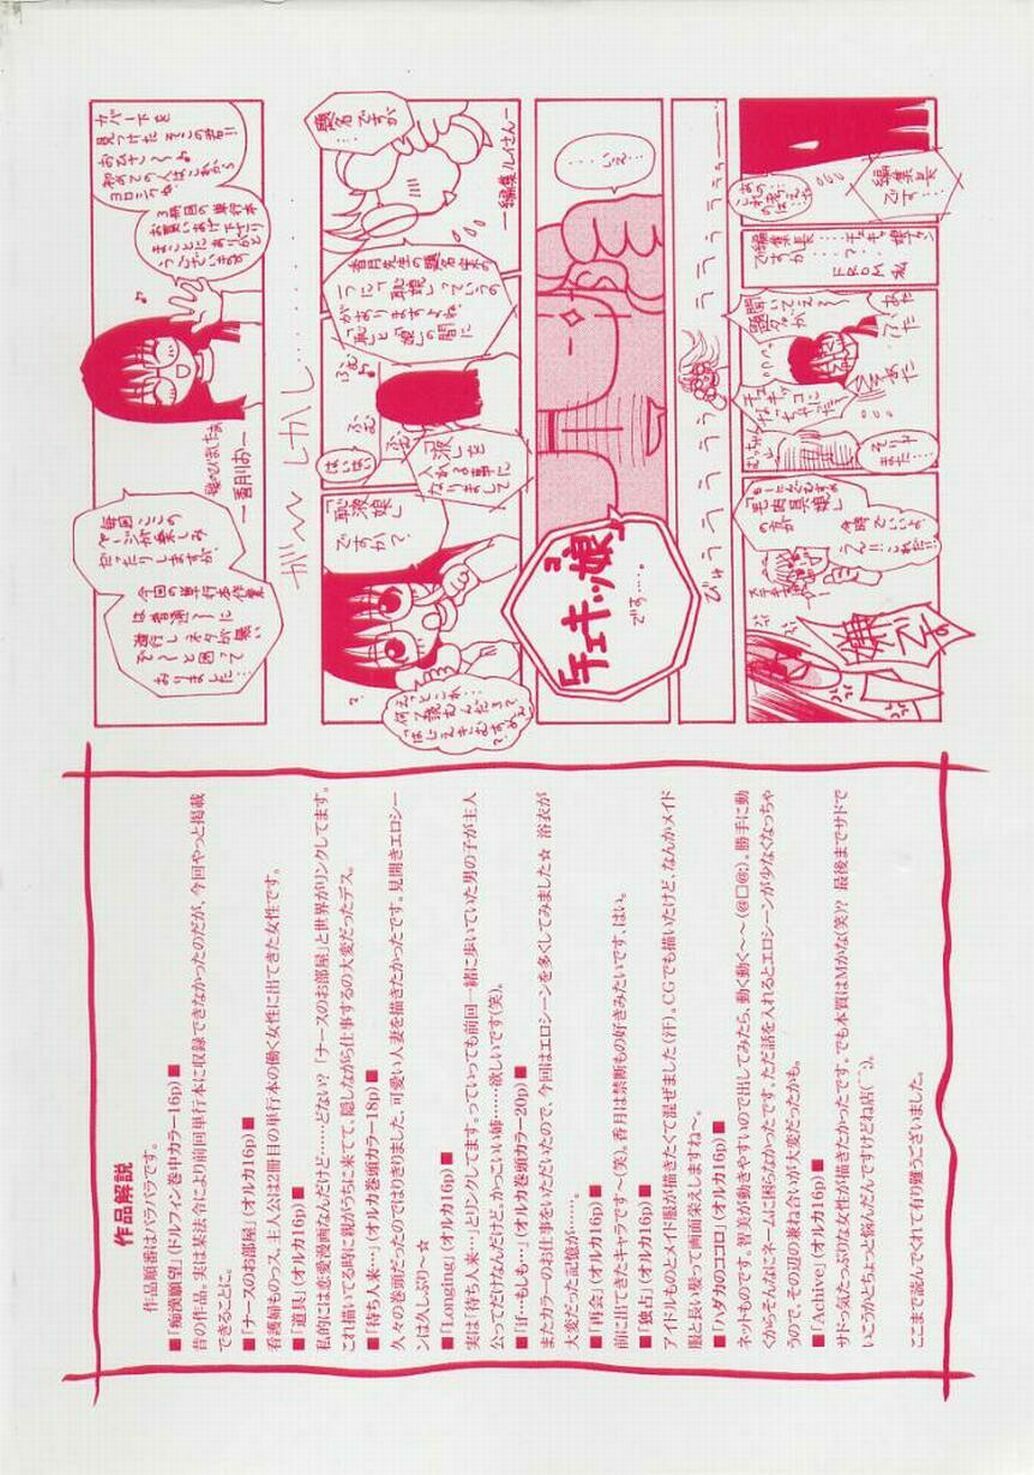 作品解説
作品順番はバラバラです。
■「痴漢願望」(ドルフィン巻中カラー16p)■
昔の作品。実は某法令により前回単行本に収録できなかったのだが、今回やっと掲載
できることに。
■「ナースのお部屋」(オルカ16p)■
看護婦ものっス、主人公は2冊目の単行本の働く女性に出てきた女性です。
■「道具」(オルカ16p)■
私的には恋愛漫画なんだけど……どない?「ナースのお部屋」と世界がリンクしてます。
これ描いてる時に親がうちに来てて、隠しながら仕事するの大変だったデス。
■「待ち人来…」(オルカ巻頭カラー18p)■
久々の巻頭だったのではりきりました、可愛い人妻を描きたかったです。見開きエロシー
ンは久しぶり〜☆
■「Longing」(オルカ16p)■
実は「待ち人来…」とリンクしてます。っていっても前回一緒に歩いていた男の子が主人
公ってだけなんだけど。かっこいい姉……欲しいです(笑)。
■「if…もしも…」(オルカ巻頭カラー20p)■
またカラーのお仕事をいただいたので、今回はエロシーンを多くしてみました☆ 浴衣が
大変だった記憶が……。
■「再会」(オルカ16p)■
前に出てきたキャラです〜(笑)。香月は禁断もの好きみたいです、はい。
■「独占」(オルカ16p)■
アイドルものとメイド服が描きたくて混ぜました(汗)。CGでも描いたけど、なんかメイド
服と長い髪って画面栄えしますね〜。
■「ハダカのココロ」(オルカ16p)■
ネットものです。智美が動きやすいので出してみたら、動く動く〜〜(@□@;)。勝手に動
くからそんなにネームに困らなかったです。ただ話を入れるとエロシーンが少なくなっちゃ
うので、その辺の兼ね合いが大変だったかも。
■「Achive」(オルカ16p)■
サドっ気たっぷりな女性が描きたかったです。でも本質はMかな(笑)?? 最後までサドで
いこうかとちょっと悩んだんですけどね店(⌒⌒;)。
ここまで読んでくれて有り難うございました。
カバー下を
見つけたそこの君!!
おひさ〜♪
初めての人はこれから
ヨロシクね。
3冊目の単行本
お買いあげ下さり
まことにありがと
うございます
♪
髪のびました
—香月りお—
毎回ここの
ページが楽しみ
だったりしますが、
今回の単行本作業
は普通〜に
進行しネタが無い
ぞ〜と困って
おりました…
が〜〜しかし……
題名ですが…
—編集ルイさん—
香月先生の題名案の
一つに「恥娘」っていうの
がありますよね
「恥」と「娘」の間に
ふむ♪
ふむ
ふむ
はいはい
「液」を
入れる事に
なりまして
「恥液娘」
ですか?
?
…いえ…
「チェキッ娘」
です……。
びゅうウウウウラララララ
あの
編集長
です…
編集長……チェキッ娘って
ですか……?
FROM 私
題名が
聞いてぇ〜
チェキッコに
なっちゃった!
そりゃ
また…
の方が
今時でいいよ
うん!!これだ!!
ステキ
嫌です